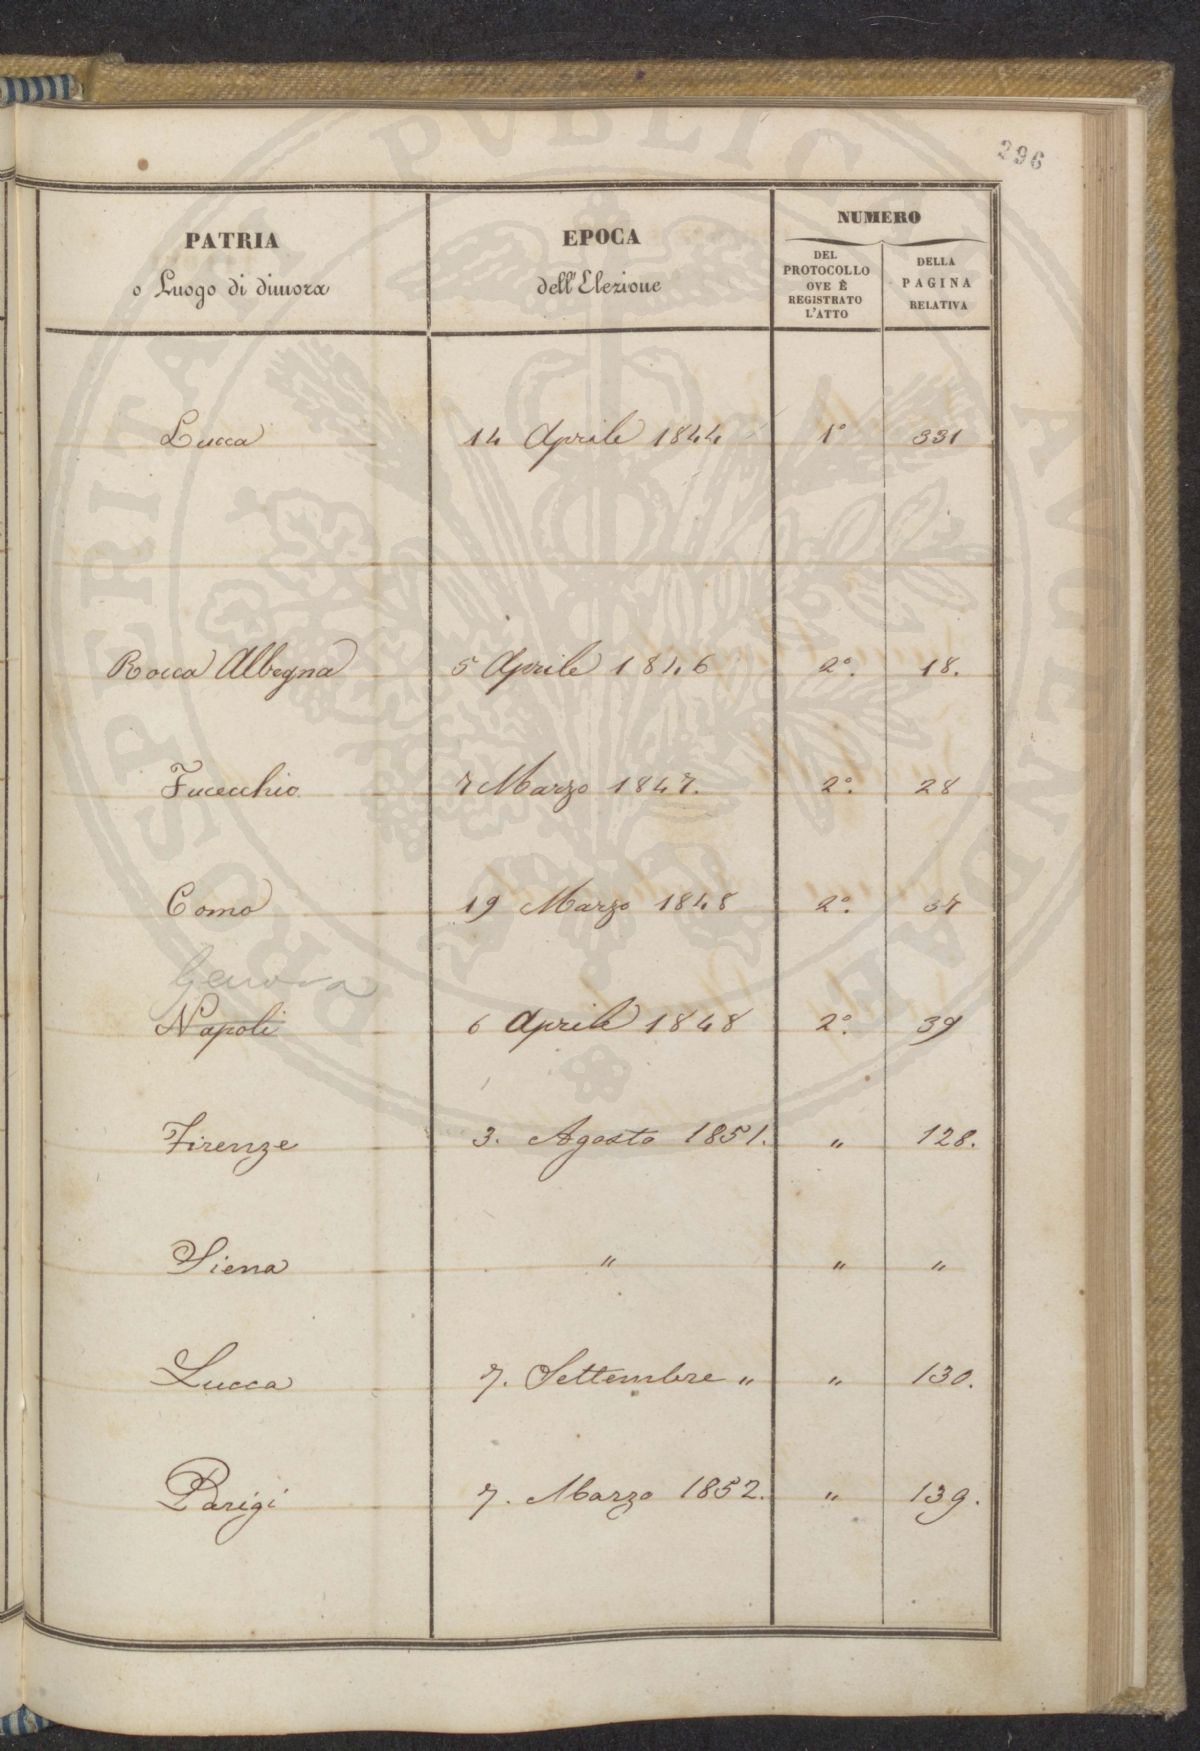 296
PATRIA
o Luogo di dimora
EPOCA
dell'Elezione
NUMERO
DEL
PROTOCOLLO
OVE È
REGISTRATO
L'ATTO
DELLA
PAGINA
RELATIVA
Lucca 14 Aprile 1844 1° 331
Rocca Albegna 5 Aprile 1846 2°. 18.
Fucecchio 7 Marzo 1847. 2°. 28
Como 19 Marzo 1848 2°. 37
Genova
Napoli 6 Aprile 1848 2°. 39
Firenze 3. Agosto 1851. " 128.
Siena " " "
Lucca 7. Settembre " " 130.
Parigi 7. Marzo 1852. " 139.
PROSPERITATI PUBLICAE AUGENDAE